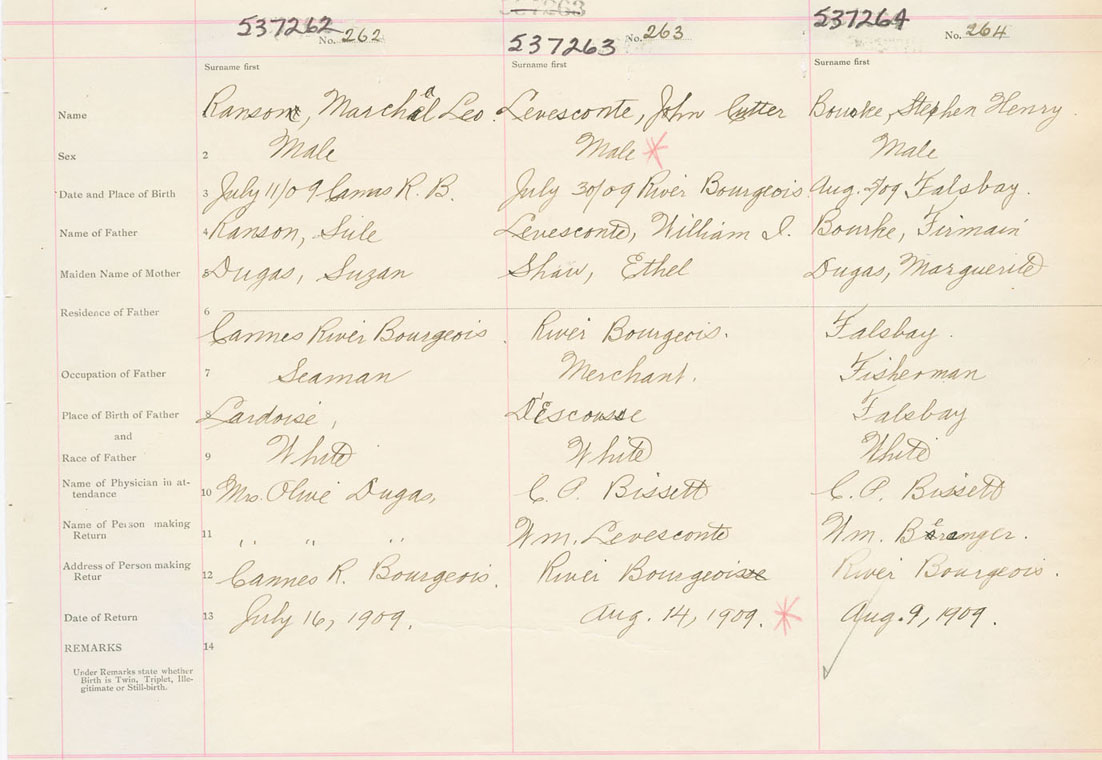 537263
537262 No. 262 537263 No. 263 537264 No. 264
Surname first Surname first Surname first
Name Ranson, Marchal Leo Levesconte, John Cutter Bourke, Stephen Henry
Sex 2 Male Male Male
Date and Place of Birth 3 July 11/09 Canas R. B. July 30/09 River Bourgeois Aug. 5/09 Falsbay.
Name of Father 4 Ranson, Sule Levesconte, William I. Bourke, Firmain
Maiden Name of Mother 5 Dugas, Suzan Shaw, Ethel Dugas, Marguerite
Residence of Father 6 Cannes River Bourgeois River Bourgeois. Falsbay.
Occupation of Father 7 Seaman Merchant. Fisherman
Place of Birth of Father 8 Lardoise, D'Escousse Falsbay
and
Race of Father 9 White White White
Name of Physician in at-
tendance 10 Mrs. Olive Dugas, C. P. Bissett C. P. Bissett
Name of Person making
Return 11 " " " Wm. Levesconte Wm. Béranger.
Address of Person making
Retur 12 Cannes R. Bourgeois. River Bourgeoisse River Bourgeois.
Date of Return 13 July 16, 1909. Aug. 14, 1909. Aug. 9, 1909.
REMARKS 14
Under Remarks state whether
Birth is Twin, Triplet, Ille-
gitimate or Still-birth.